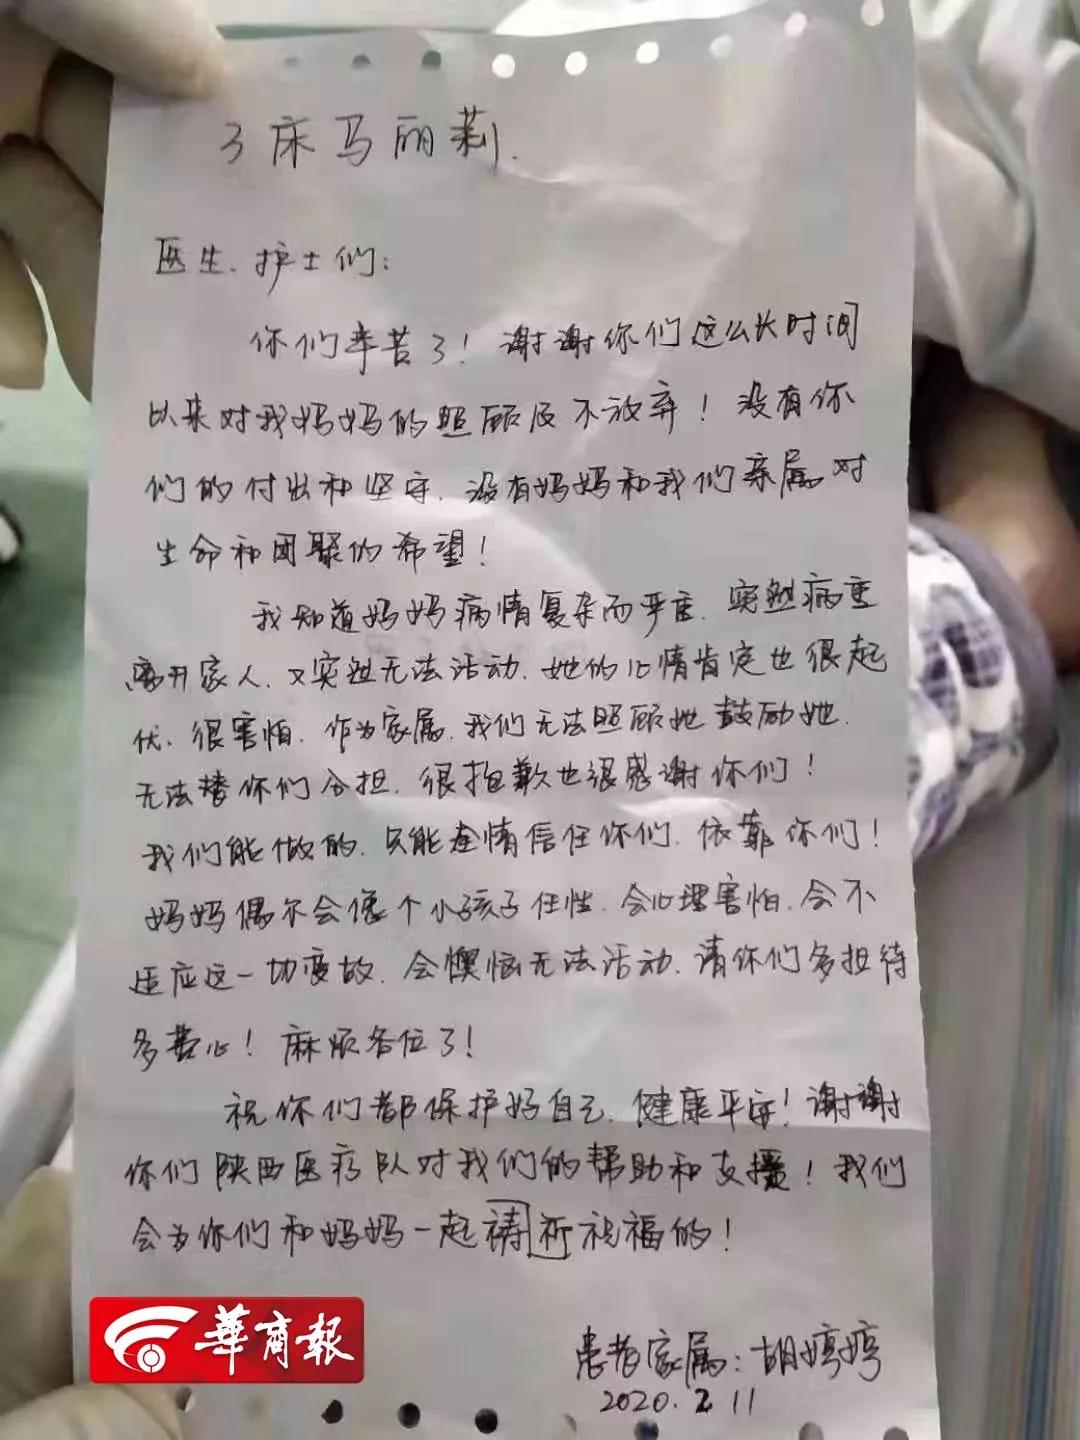 3床马丽莉.
医生、护士们:
你们辛苦了! 谢谢你们这么长时间
以来对我妈妈的照顾及不放弃! 没有你
们的付出和坚守、没有妈妈和我们亲属对
生命和团聚的希望!
我知道妈妈病情复杂而严重、突然病重
离开家人、又突然无法活动、她的心情肯定也很起
伏、很害怕、作为家属、我们无法照顾她鼓励她、
无法替你们分担、很抱歉也很感谢你们!
我们能做的、只能尽情信任你们、依靠你们!
妈妈偶尔会像个小孩子任性、会心理害怕、会不
适应这一切变故、会懊恼无法活动、请你们多担待
多费心! 麻烦各位了!
祝你们都保护好自己、健康平安! 谢谢
你们陕西医疗队对我们的帮助和支援! 我们
会为你们和妈妈一起祷祈祝福的!
患者家属: 胡婷婷
2020.2.11
華商報